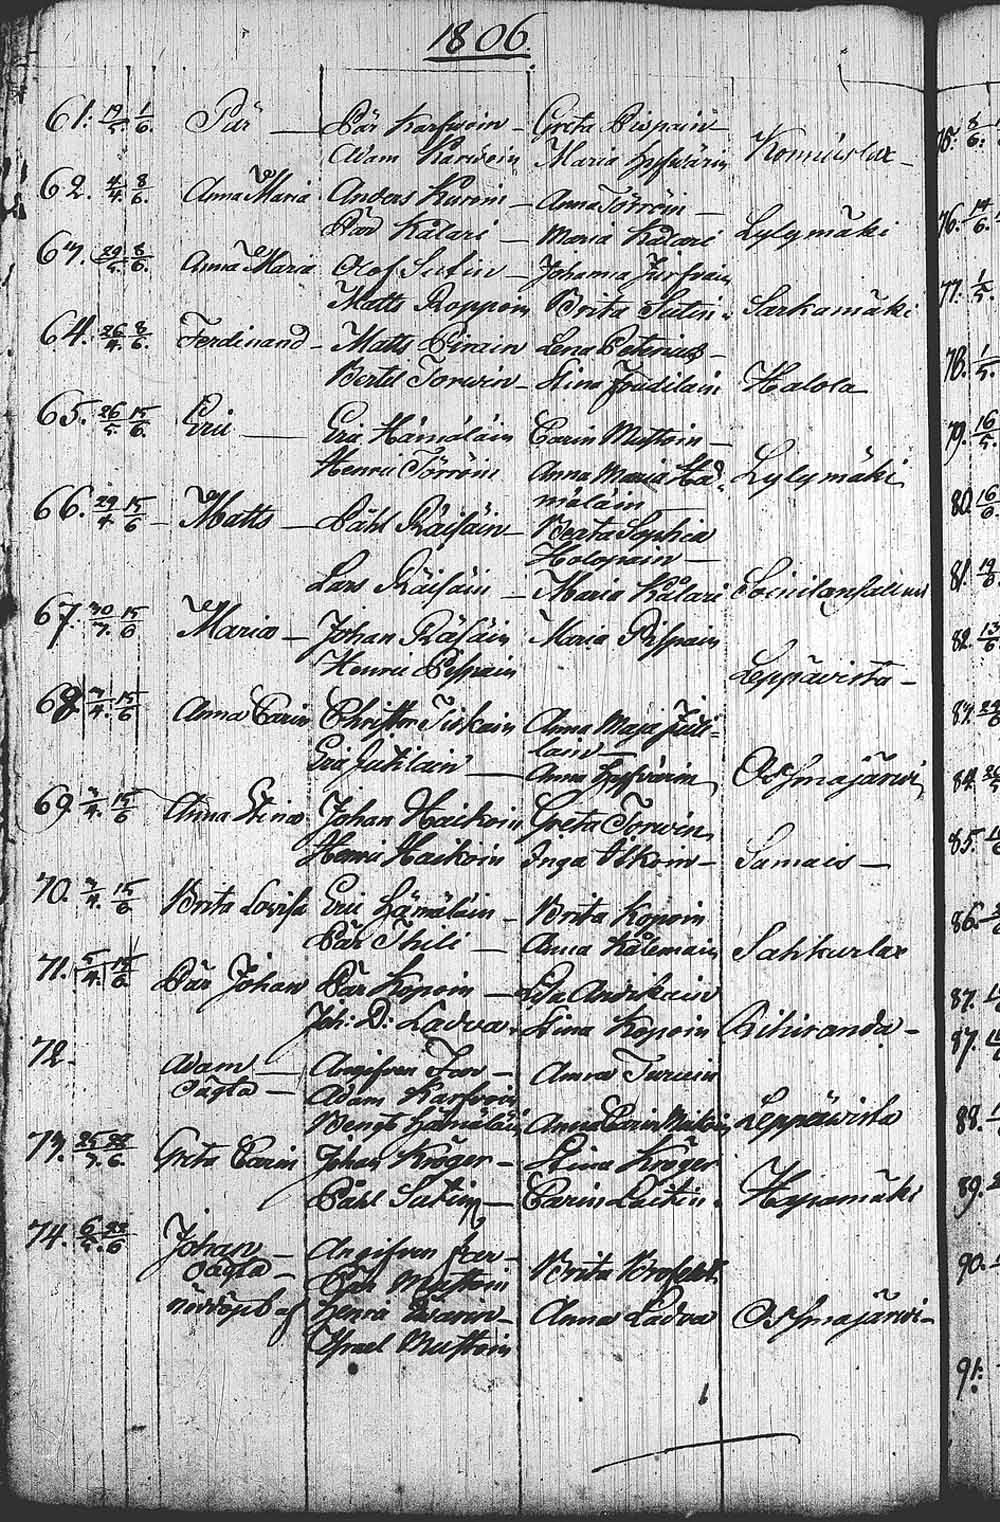 1806.
61. 19/5. 1/6. Pär — Pär Karfwoin — Greta Pispain —
Adam Karwoin Maria Hyfwärin Konnuslax —
62. 4/4. 8/6. Anna Maria Anders Kuroin — Anna Törröin —
Pär Kålari — Maria Kålari Lylymäki
63. 29/5. 8/6. Anna Maria Olof Sutin — Johanna
Matts Roppoin Brita Sutin Sarkamäki
64. 26/4. 8/6. Ferdinand — Matts Pirain Lena Peterius —
Bertel Torwin — Stina Judilain Halola
65. 26/5. 15/6. Eric — Eric Hämäläin Carin Mustoin —
Henric Törröin Anna Maria Hä-
mäläin — Lylymäki
66. 29/4. 15/6 — Matts — Påhl Räisäin — Beata Sophia
Holopain —
Lars Räisäin — Maria Kålari
67. 30/3. 15/6 Maria — Johan Räsäin Maria Pispain
Henric Pispain Leppävirta —
68. 3/4. 15/6 Anna Carin Christer Tiskain Anna Maja Juti-
lain —
Eric Jutilain — Anna Hyfvärin Osmajärwi
69. 3/4. 15/6 Anna Stina Johan Haikoin Greta Torwin
Henric Haikoin Inga Itkoin — Samais —
70. 3/4. 15/6 Brita Lovisa Eric Hämäläin — Brita Kopoin
Pär Thili — Anna Kålemain Sahkurlax
71. 5/4. 15/6. Pär Johan Pär Kopoin — Lisa Andikain
Joh: D: Ladva. Stina Kopoin Riihiranda —
72. Adam — Angifven Far — Anna Turuin
oägta — Adam Karfvoin
Bengt Hämäläin Anna Carin Leppävirta
73. 25/3. 22/6. Greta Carin Johan Kröger — Stina Kröger
Påhl Sutin — Carin Laitin. Hapamäki
74. 6/5. 22/6 Johan — Angifven Far —
oägta — Pär Mustoin Brita
nöddöpt af Henric — Anna Ladva Osmajärwi —
Israel Mustoin
75. 8/6.
76. 14/6.
77. 1/5.
78. 1/5.
79. 16/5.
80. 16/6.
81. 19/6
82. 13/6
83. 22/6
84.
85.
86.
87.
87.
88.
89.
90.
91.